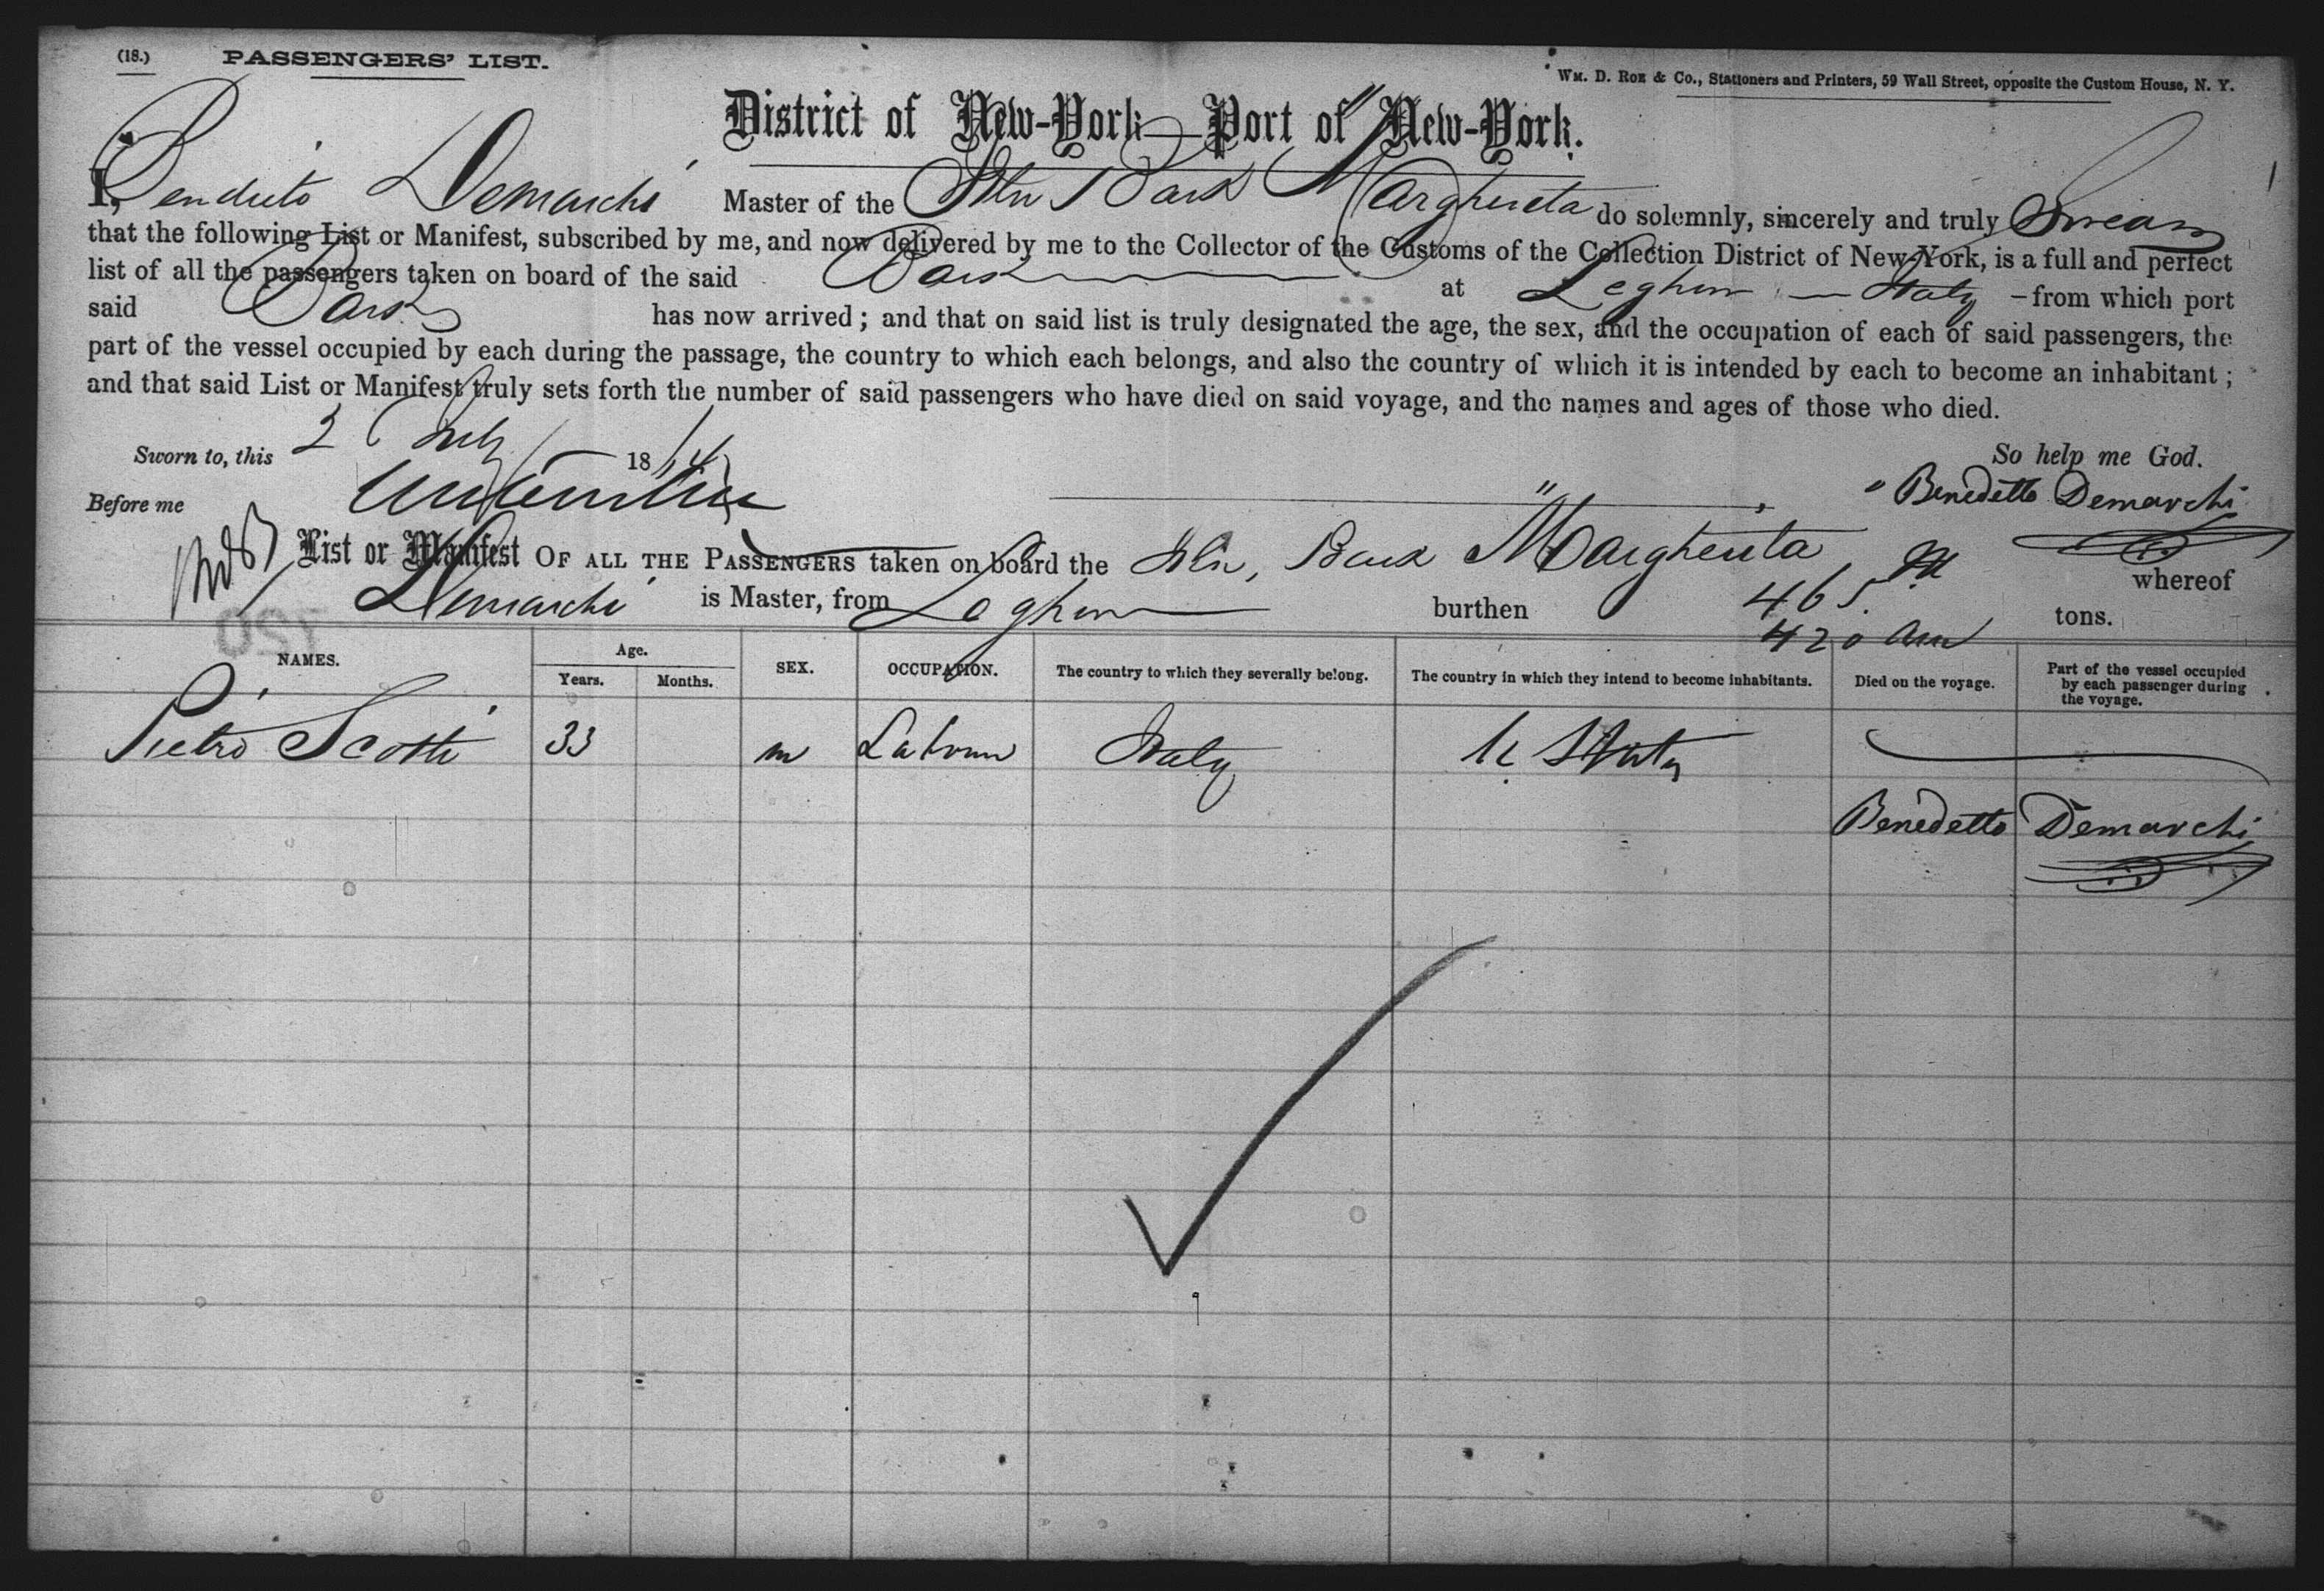 (18.) PASSENGERS' LIST.
WM. D. ROE & Co., Stationers and Printers, 59 Wall Street, opposite the Custom House, N. Y.
District of New-York—Port of New-York.
I, Bendieto Demarchi Master of the Itln Bark "Margherita do solemnly, sincerely and truly Swear
that the following List or Manifest, subscribed by me, and now delivered by me to the Collector of the Customs of the Collection District of New-York, is a full and perfect
list of all the passengers taken on board of the said Bark at Leghorn — Italy – from which port
said Bark has now arrived; and that on said list is truly designated the age, the sex, and the occupation of each of said passengers, the
part of the vessel occupied by each during the passage, the country to which each belongs, and also the country of which it is intended by each to become an inhabitant;
and that said List or Manifest truly sets forth the number of said passengers who have died on said voyage, and the names and ages of those who died.
Sworn to, this 2 July 18
So help me God.
Before me
Benedetto Demarchi
List or Manifest OF ALL THE PASSENGERS taken on board the Itln, Bark "Margherita whereof
Demarchi is Master, from Leghorn burthen 465. tons.
420 Am
720
NAMES. Age. Years. Months. SEX. OCCUPATION. The country to which they severally belong. The country in which they intend to become inhabitants. Died on the voyage. Part of the vessel occupied by each passenger during the voyage.
Pietro Scotti 33 m Labourer Italy U States
Benedetto Demarchi